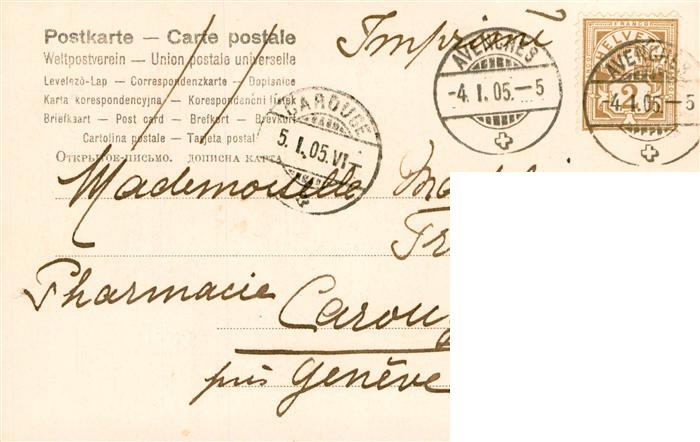 Postkarte — Carte postale
Weltpostverein — Union postale universelle
Levelező-Lap — Correspondenzkarte — Dopisnice
Karta korespondencyjna — Korespondenční lístek
Briefkaart — Post card — Brefkort — Brevkort
Cartolina postale — Tarjeta postal
Открытое-письмо. дописна карта
Imprimé
AVENCHES
-4.I.05.—5
FRANCO
HELVETIA
2
AVENCHES
-4.I.05.—5
CAROUGE
5.I.05.VI—
Mademoiselle
Pharmacie
Caroug
près Genève